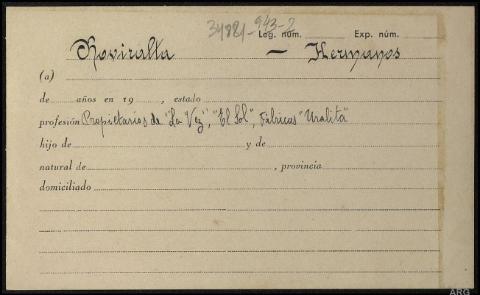 34881-943-2
Leg. núm. Exp. núm.
Roviralta — Hermanos
(a)
de años en 19 , estado
profesión Propietarios de "La Voz", "El Sol", Fábricas "Uralita"
hijo de y de
natural de , provincia
domiciliado
ARG